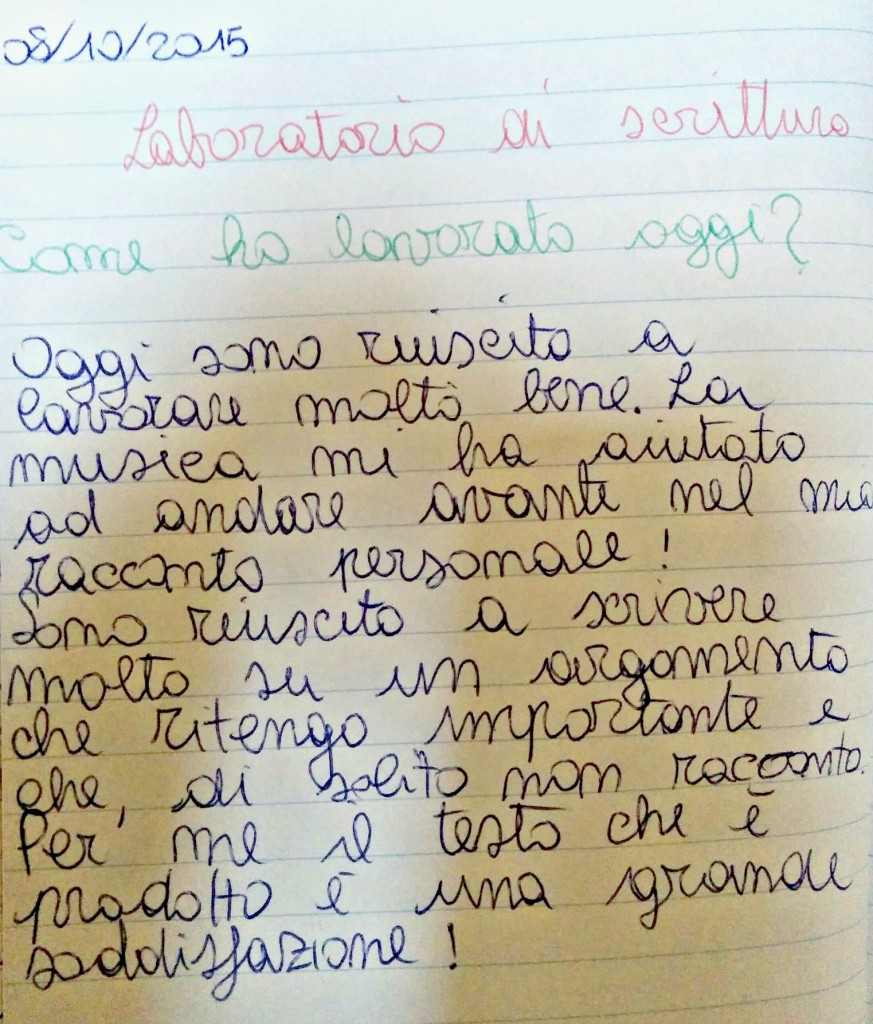 08/10/2015
Laboratorio di scrittura
Come ho lavorato oggi?
Oggi sono riuscito a
lavorare molto bene. La
musica mi ha aiutato
ad andare avante nel mio
racconto personale!
Sono riuscito a scrivere
molto su un argomento
che ritengo importante e
che, di solito non racconto.
Per me il testo che è
prodotto è una grande
soddisfazione!